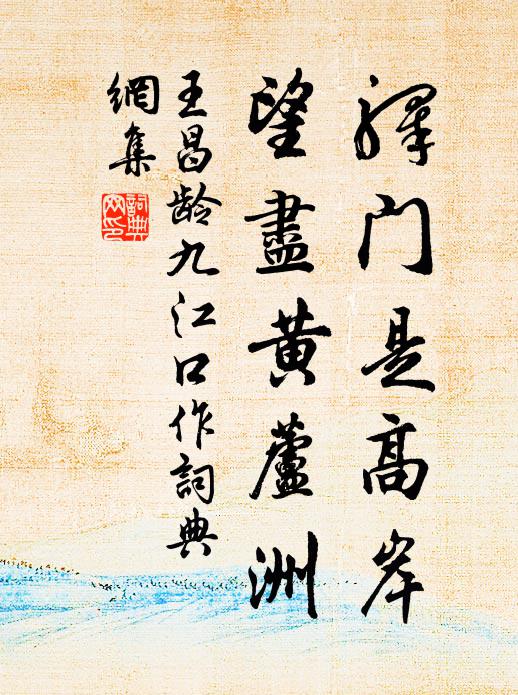 驛门是高岸
望盡黄蘆洲
王昌龄九江口作詞典
網集
詞典
网印